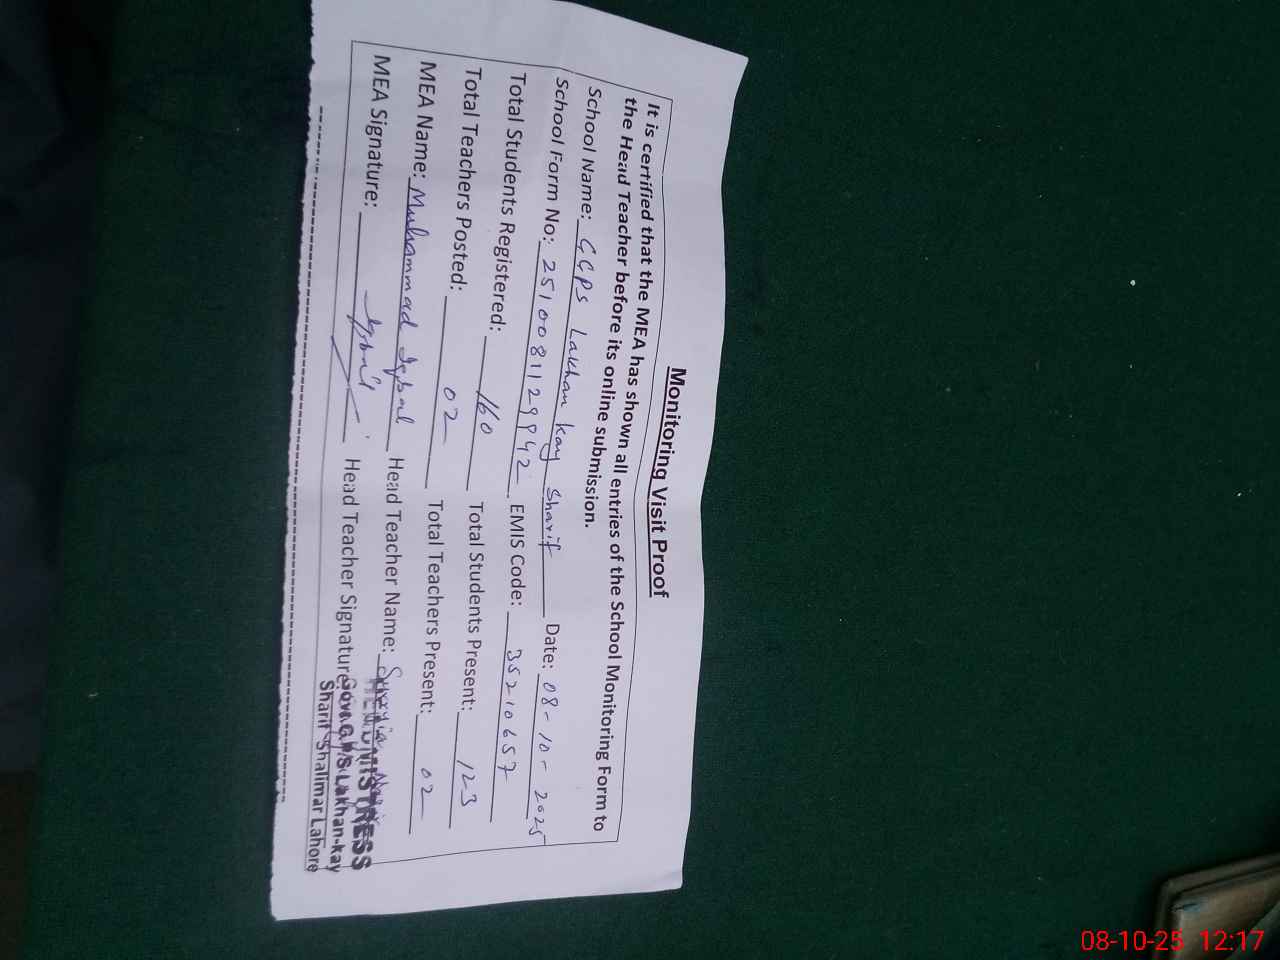 Monitoring Visit Proof
It is certified that the MEA has shown all entries of the School Monitoring Form to
the Head Teacher before its online submission.
School Name: GGPS Lakhan kay Sharif Date: 08-10-2025
School Form No: 2510081129942 EMIS Code: 35210657
Total Students Registered: 160 Total Students Present: 123
Total Teachers Posted: 02 Total Teachers Present: 02
MEA Name: Muhammad Iqbal Head Teacher Name:
MEA Signature: Iqbal Head Teacher Signature:
HEADMISTRESS
Govt. G.P/S Lakhan-kay
Sharif Shalimar Lahore
08-10-25 12:17